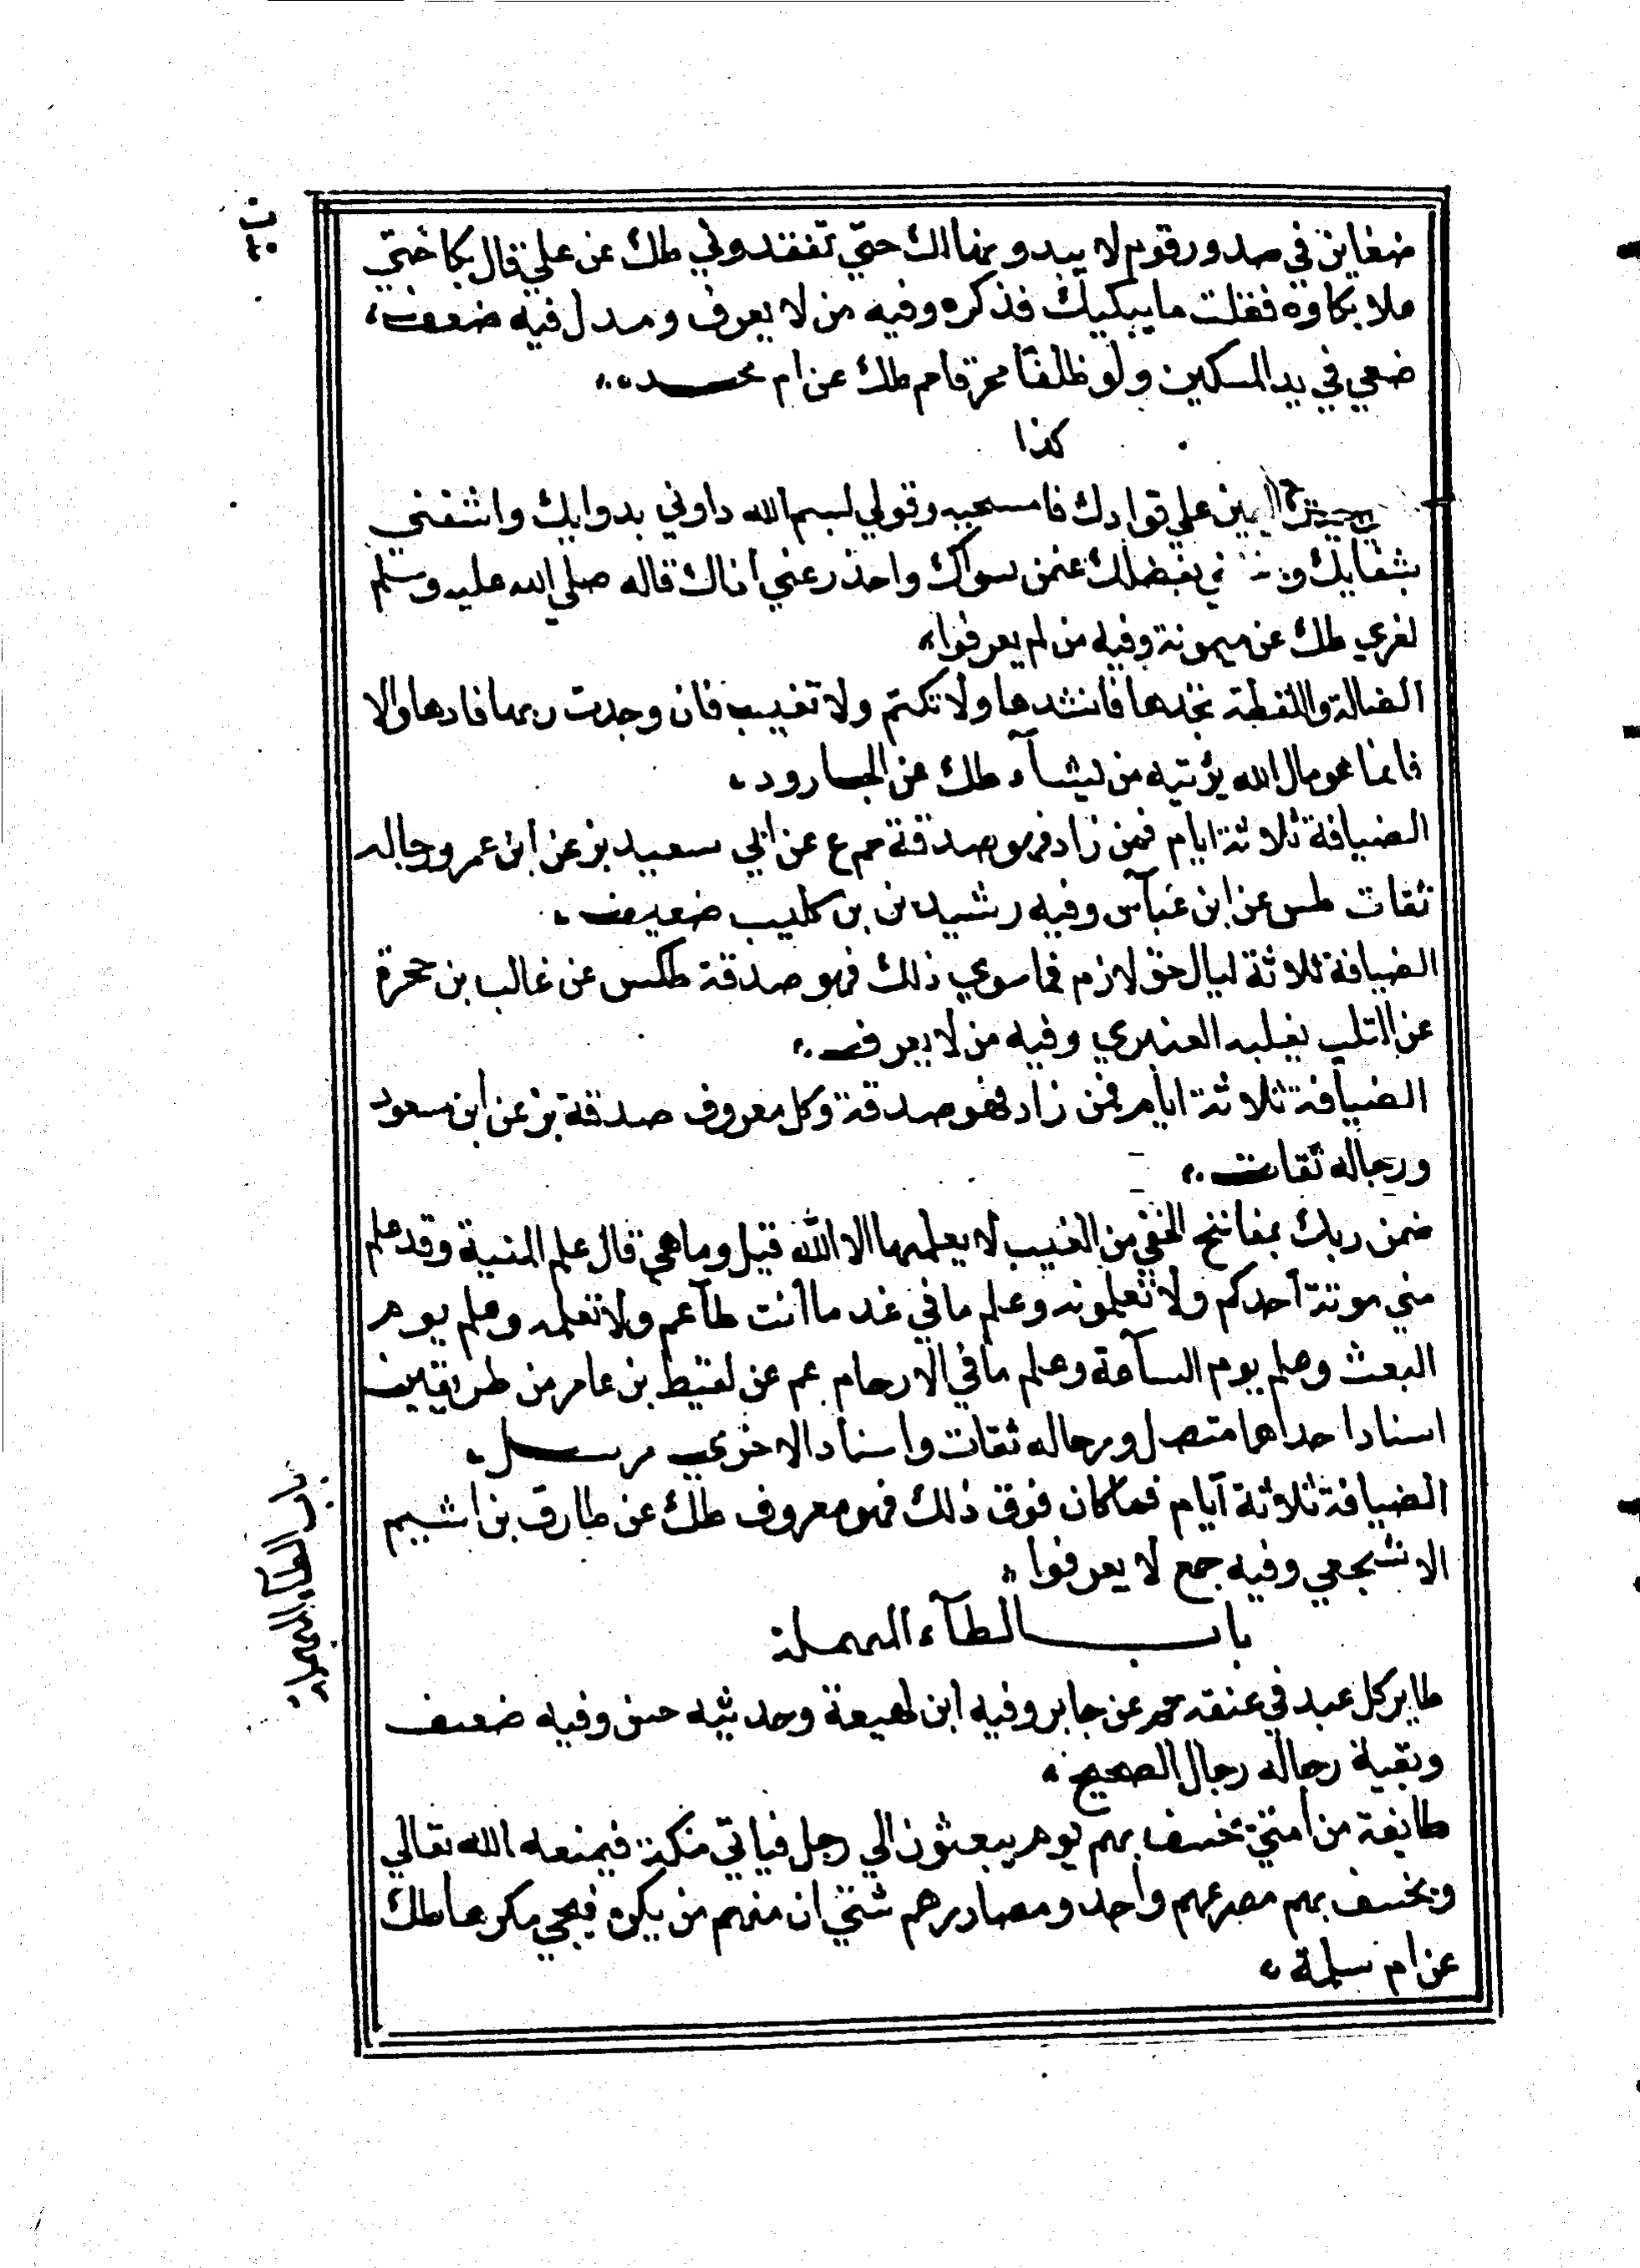 ضغاين في صدور قوم لا يبدونها لك حتي تفقدوني طك عن علي قال بكا حتي
علا بكاوه فقلت ما يبكيك فذكره وفيه من لا يعرف ومندل فيه ضعف
ضعي في يد المسكين ولو ظلفا محرقا حم طك عن ام بجيد
كذا
اليمين علي فوادك فامسحيه وقولي بسم الله داوني بدوايك واشفني
بشفايك و بفضلك عمن سواك واحذر عني اذاك قاله صلي الله عليه وسلم
لغري طك عن ميمونة وفيه من لم يعرفوا
الضالة واللقطة تجدها فانشدها ولا تكتم ولا تغيب فان وجدت ربها فادها والا
فانما هو مال الله يؤتيه من يشآء طك عن الجارود
الضيافة ثلاثة ايام فمن زاد فهو صدقة حم ع عن ابي سعيد بز عن ابن عمر ورجاله
ثقات طس عن ابن عبآس وفيه رشدين بن كليب ضعيف
الضيافة ثلاثة ليال حق لازم فما سوي ذلك فهو صدقة طكس عن غالب بن حجرة
عن التلب بعلبه العنبري وفيه من لا يعرف
الضيافة ثلاثة ايام فمن زاد فهو صدقة وكل معروف صدقة بز عن ابن مسعود
ورجاله ثقات
ضمن ربك بمفاتيح الخفي من الغيب لا يعلمها الا الله قيل وما هي قال علم المنية وقد علم
متي موتة احدكم ولا تعلمونه وعلم ما في غد ما انت طآعم ولا تعلمه وعلم يوم
البعث وعلم يوم السآعة وعلم ما في الارحام عم عن لقيط بن عامر من طريقين
اسناد احداهما متصل ورجاله ثقات واسناد الاخري مرسل
الضيافة ثلاثة آيام فما كان فوق ذلك فهو معروف طك عن طارق بن اشيم
الاشجعي وفيه جمع لا يعرفوا
باب الطآء المهملة
باب الطآء المهملة
طاير كل عبد في عنقه حم عن جابر وفيه ابن لهيعة وحديثه حسن وفيه ضعف
وبقية رجاله رجال الصحيح
طايفة من امتي يخسف بهم يوم يبعثون الي رجل فياتي مكة فيمنعه الله تعالي
ويخسف بهم مصرعهم واحد ومصادرهم شتي ان منهم من يكره فيجي مكرها طك
عن ام سلمة